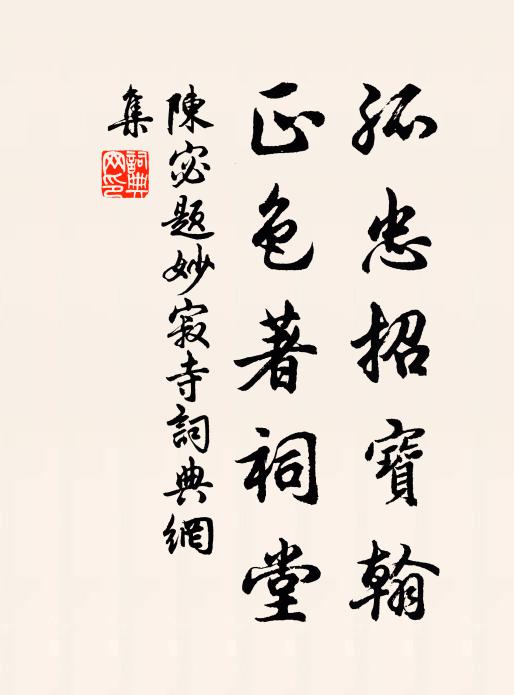 孤忠招寶翰
正色著祠堂
陳宓題妙寂寺詞典網
集
詞典
网印